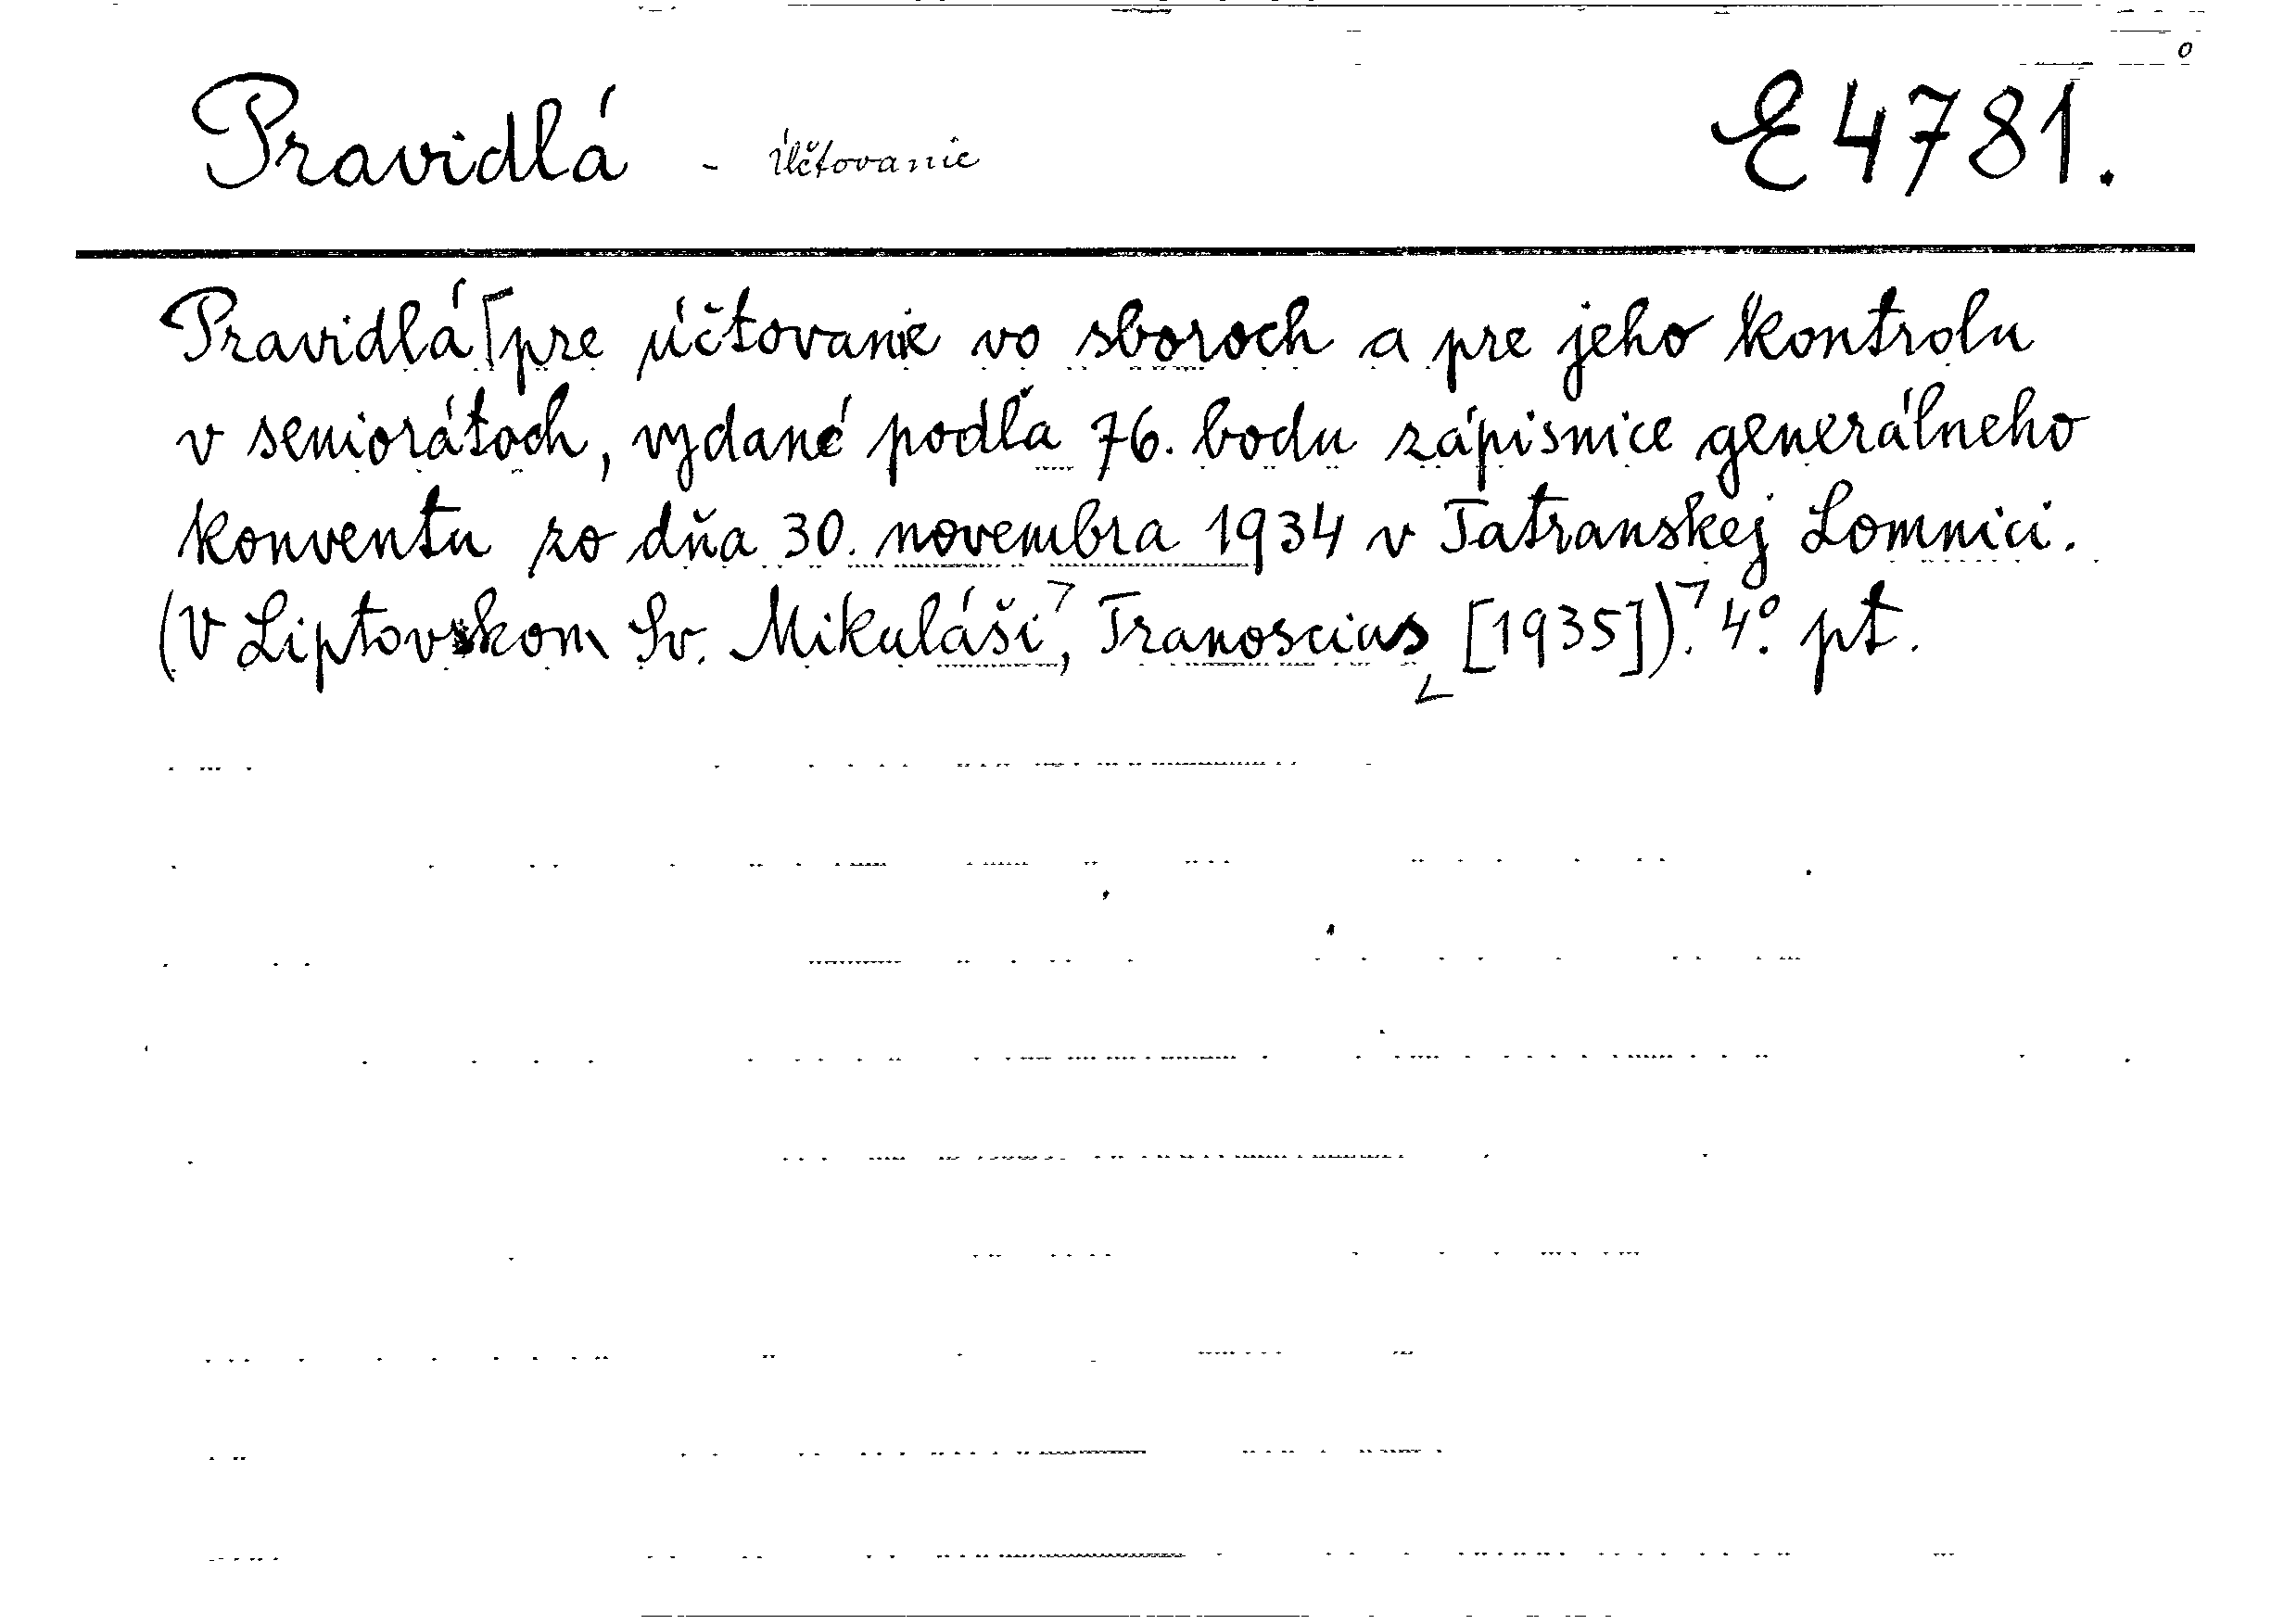 Pravidlá - Účtovanie E 4781.
Pravidlá [pre účtovanie vo sboroch a pre jeho kontrolu
v seniorátoch, vydané podľa 76. bodu zápisnice generálneho
konventu zo dňa 30. novembra 1934 v Tatranskej Lomnici.
(V Liptovskom Sv. Mikuláši, Tranoscius [1935]). 4° pt.